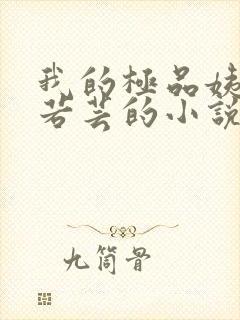 我的極品姨
若芸的小說
九筒骨